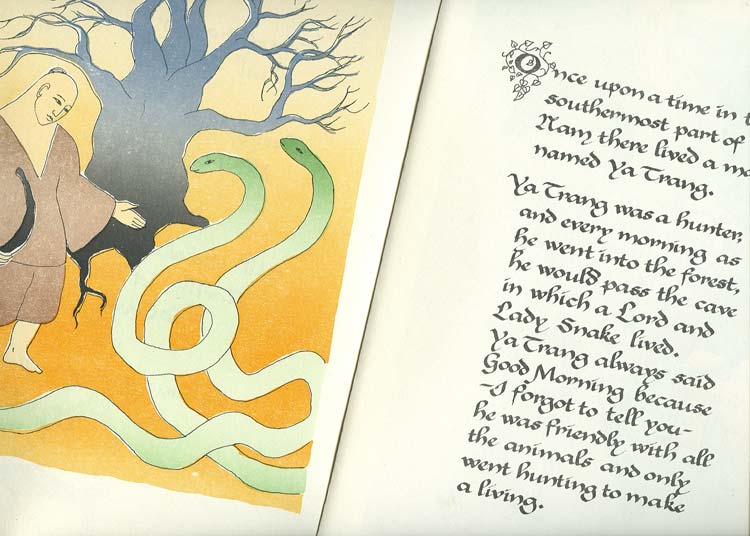 Once upon a time in t
southermost part of
Nam, there lived a ma
named Ya Trang.
Ya Trang was a hunter,
and every morning as
he went into the forest,
he would pass the cave
in which a Lord and
Lady Snake lived.
Ya Trang always said
Good Morning because
-I forgot to tell you-
he was friendly with all
the animals and only
went hunting to make
a living.